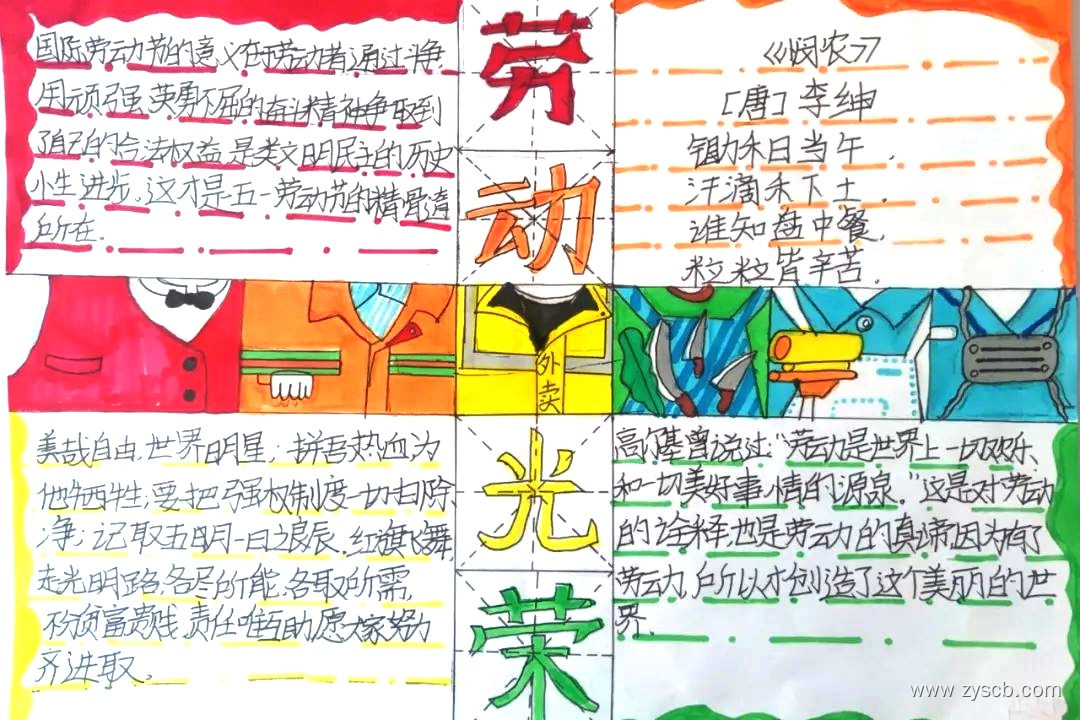 国际劳动节的意义在于劳动者通过斗争
用顽强、英勇不屈的奋斗精神争取到
了自己的合法权益,是类文明民主的历史
小生进步。这才是五一劳动节的精骨遺
所在.
劳
动
光
荣
《悯农》
[唐] 李绅
锄禾日当午,
汗滴禾下土.
谁知盘中餐,
粒粒皆辛苦.
外
卖
美哉自由,世界明星;拼吾热血为
他牺牲;要把强权制度一切扫除
净;记取五月一日之良辰.红旗飞舞
走光明路,各尽所能,各取所需,
不分贫富贵贱,责任唯互助愿大家努力
齐进取.
高尔基曾说过“劳动是世界上一切欢乐、
和一切美好事情的源泉。”这是对劳动
的诠释,也是劳动的真谛因为有了
劳动,所以才创造了这个美丽的世
界.
www.zyscb.com